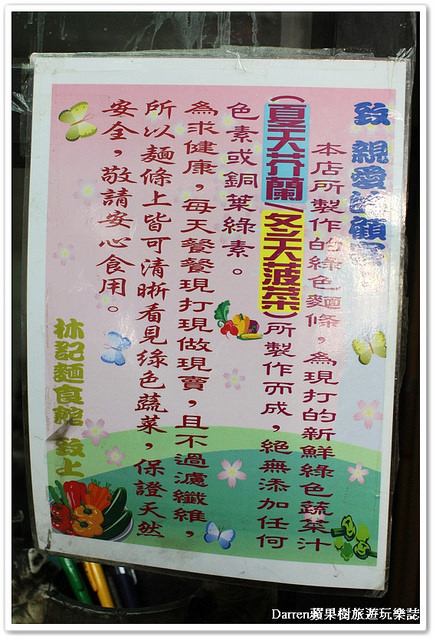 致 親愛的顧客
本店所製作的綠色麵條，為現打的新鮮綠色蔬菜汁
(夏天芥蘭/冬天菠菜)所製作而成，絕無添加任何
色素或銅葉綠素。
為求健康，每天餐餐現打現做現賣，且不過濾纖維，
所以麵條上皆可清晰看見綠色蔬菜，保證天然
安全，敬請安心食用。
林記麵食館 敬上
Darren蘋果樹旅遊玩樂誌